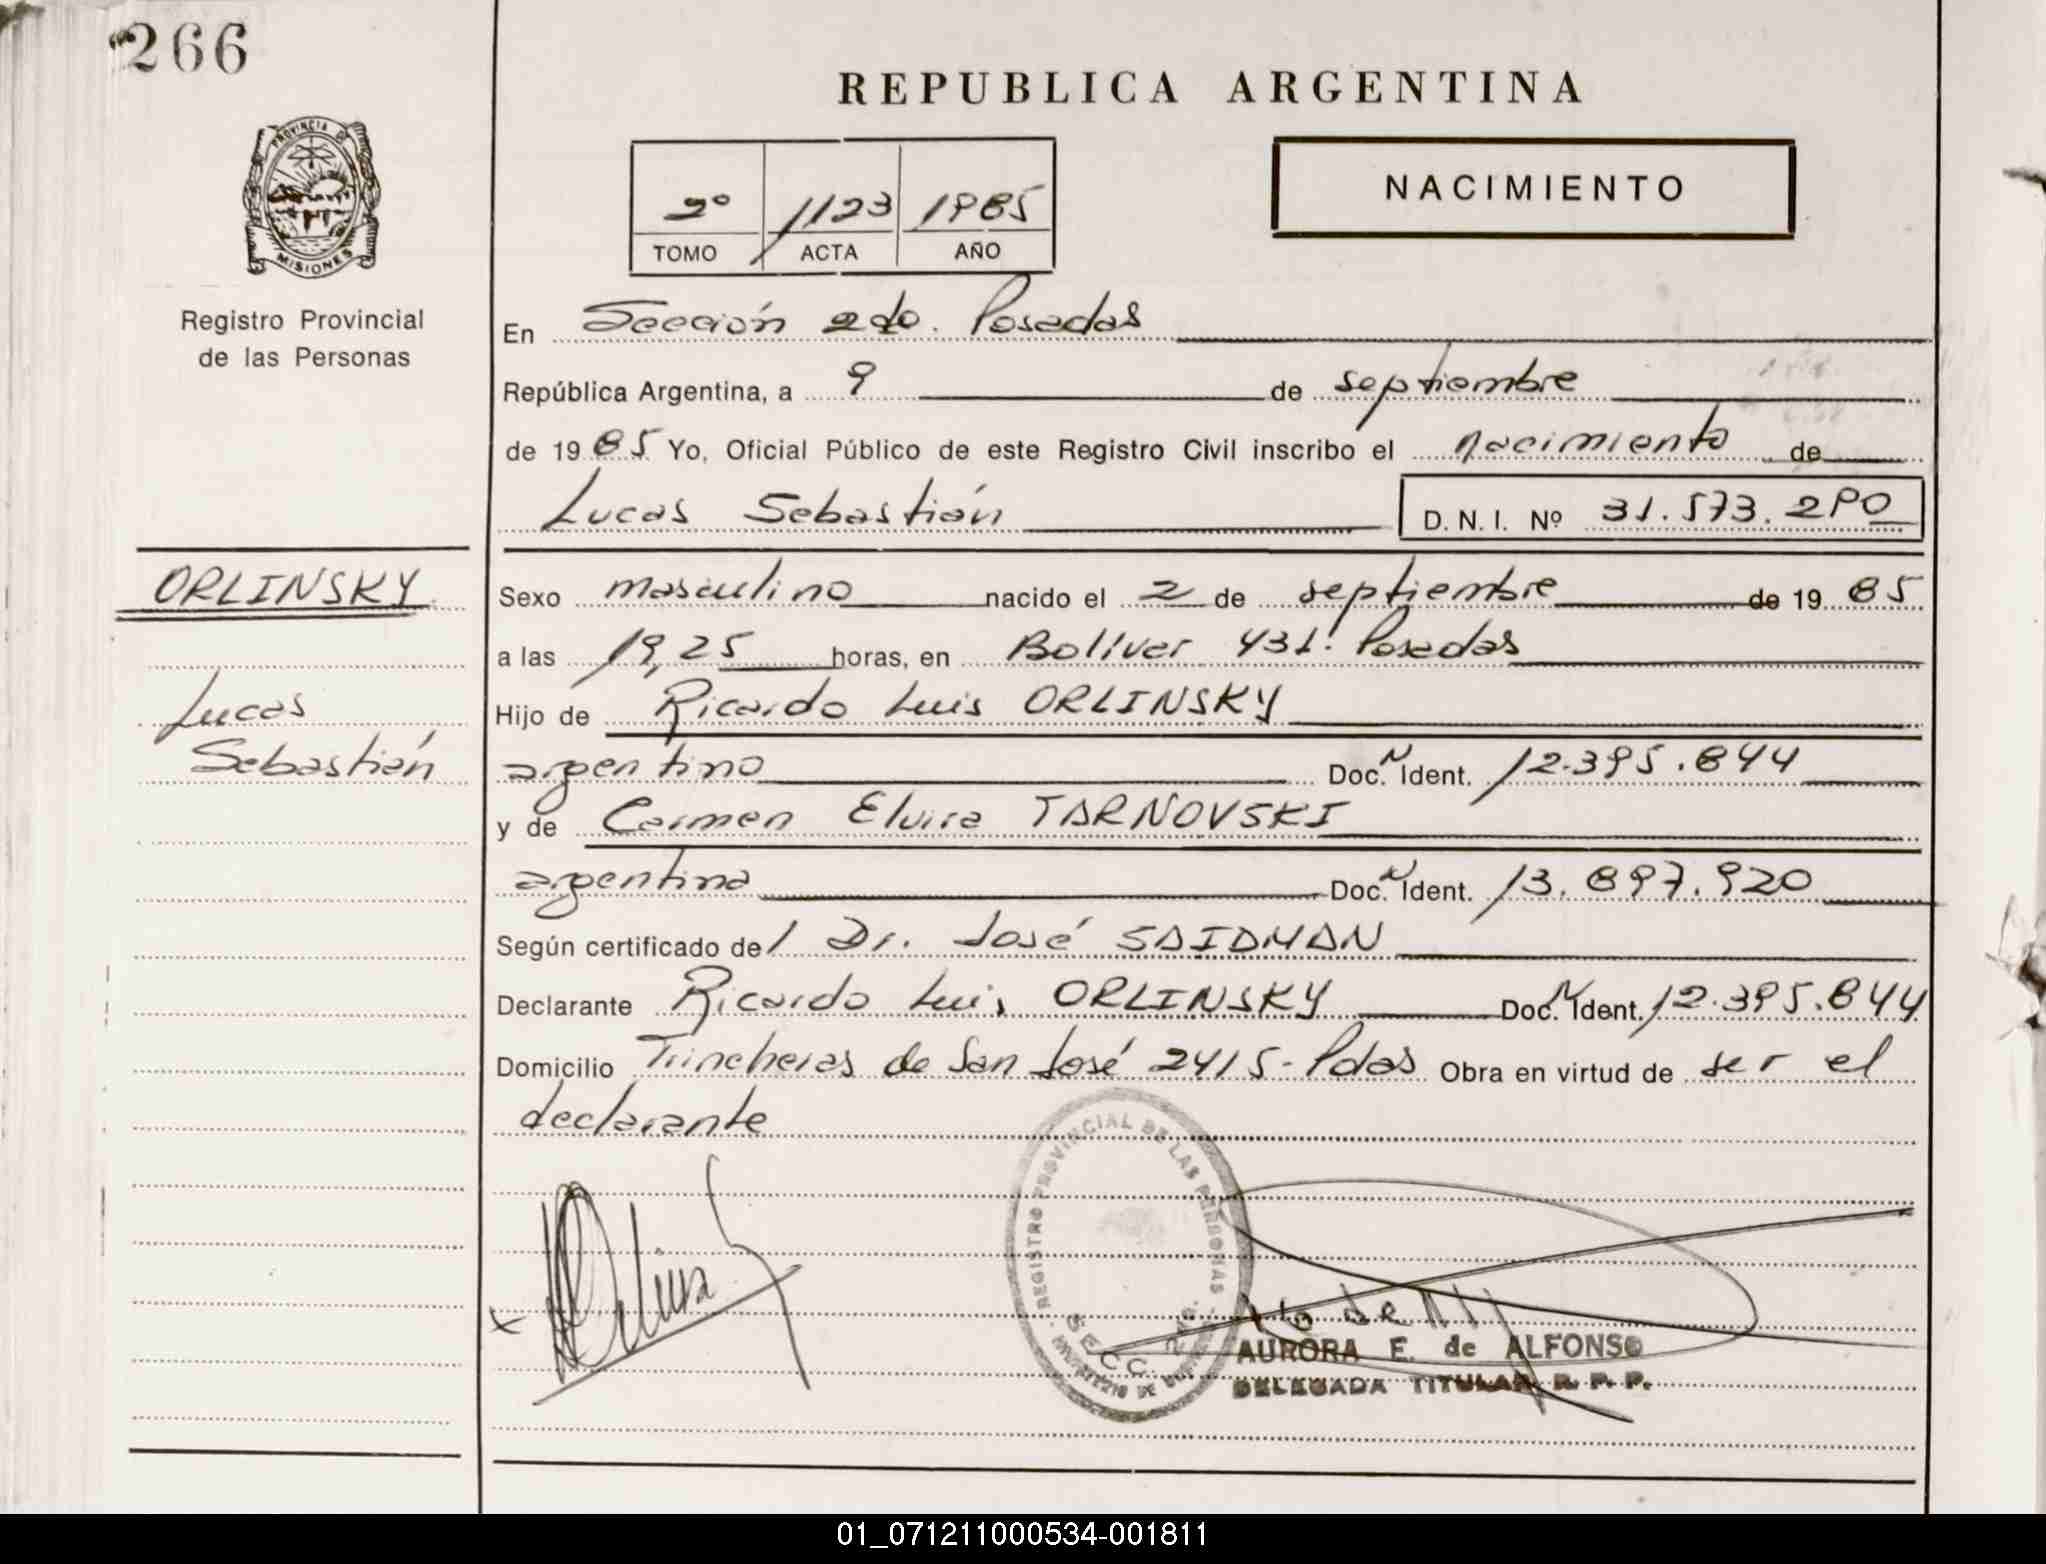 266
REPUBLICA ARGENTINA
PROVINCIA DE
MISIONES
Registro Provincial
de las Personas
2º 1123 1985
TOMO ACTA AÑO
NACIMIENTO
En Sección 2da. Posadas
República Argentina, a 9 de septiembre
de 1985 Yo, Oficial Público de este Registro Civil inscribo el nacimiento de
Lucas Sebastián D. N. I. Nº 31.573.290
ORLINSKY
Lucas
Sebastián
Sexo masculino nacido el 2 de septiembre de 1985
a las 19,25 horas, en Bolívar 431. Posadas
Hijo de Ricardo Luis ORLINSKY
argentino Doc. N Ident. 12.395.844
y de Carmen Elvira TARNOVSKI
argentina Doc. N Ident. 13.897.920
Según certificado del Dr. José SAIDMAN
Declarante Ricardo Luis ORLINSKY Doc. N Ident. 12.395.844
Domicilio Trincheras de San José 2415-Pdas Obra en virtud de ser el
declarante
REGISTRO PROVINCIAL DE LAS PERSONAS
SECC.
AURORA E. de ALFONSO
DELEGADA TITULAR R. P. P.
01_071211000534-001811